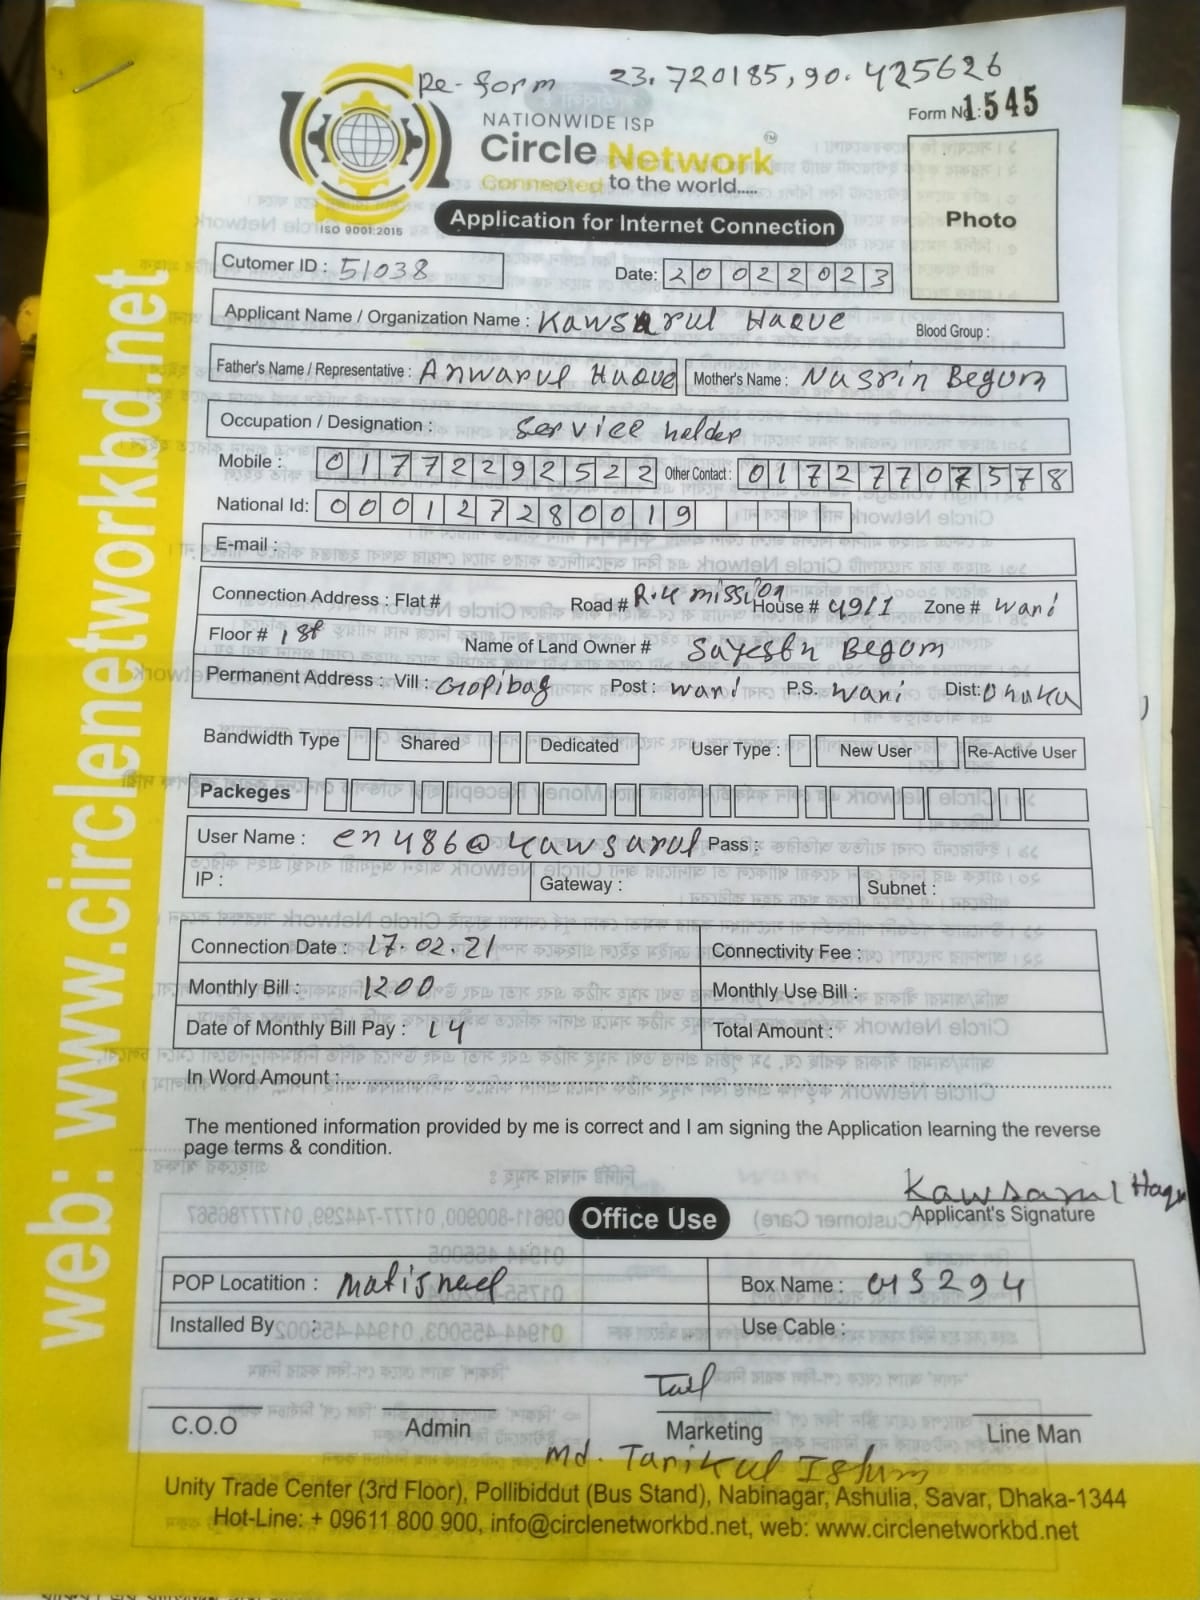 Re-form 23.720185, 90.425626
NATIONWIDE ISP
Form No.: 1545
Circle Network™
Connected to the world.....
ISO 9001:2015
Application for Internet Connection
Photo
Cutomer ID : 51038 Date: 20022023
Applicant Name / Organization Name : Kawsarul Haque Blood Group :
Father's Name / Representative : Anwarul Haque Mother's Name : Nasrin Begum
Occupation / Designation : Service holder
Mobile : 01772292522 Other Contact : 01727707578
National Id: 000127280019
E-mail :
Connection Address : Flat # Road # R.K mission House # 49/1 Zone # wari
Floor # 1st Name of Land Owner # Begum
Permanent Address : Vill : Gopibag Post : wari P.S. wari Dist: Dhaka
Bandwidth Type Shared Dedicated User Type : New User Re-Active User
Packeges
User Name : en486@kawsarul Pass :
IP : Gateway : Subnet :
Connection Date : 17.02.21 Connectivity Fee :
Monthly Bill : 1200 Monthly Use Bill :
Date of Monthly Bill Pay : 14 Total Amount :
In Word Amount :
The mentioned information provided by me is correct and I am signing the Application learning the reverse
page terms & condition.
Kawsarul Haque
Applicant's Signature
Office Use
POP Locatition : Box Name :
Installed By : Use Cable :
C.O.O Admin Marketing Line Man
Md. Tarikul Islam
Unity Trade Center (3rd Floor), Pollibiddut (Bus Stand), Nabinagar, Ashulia, Savar, Dhaka-1344
Hot-Line: + 09611 800 900, info@circlenetworkbd.net, web: www.circlenetworkbd.net
web: www.circlenetworkbd.net